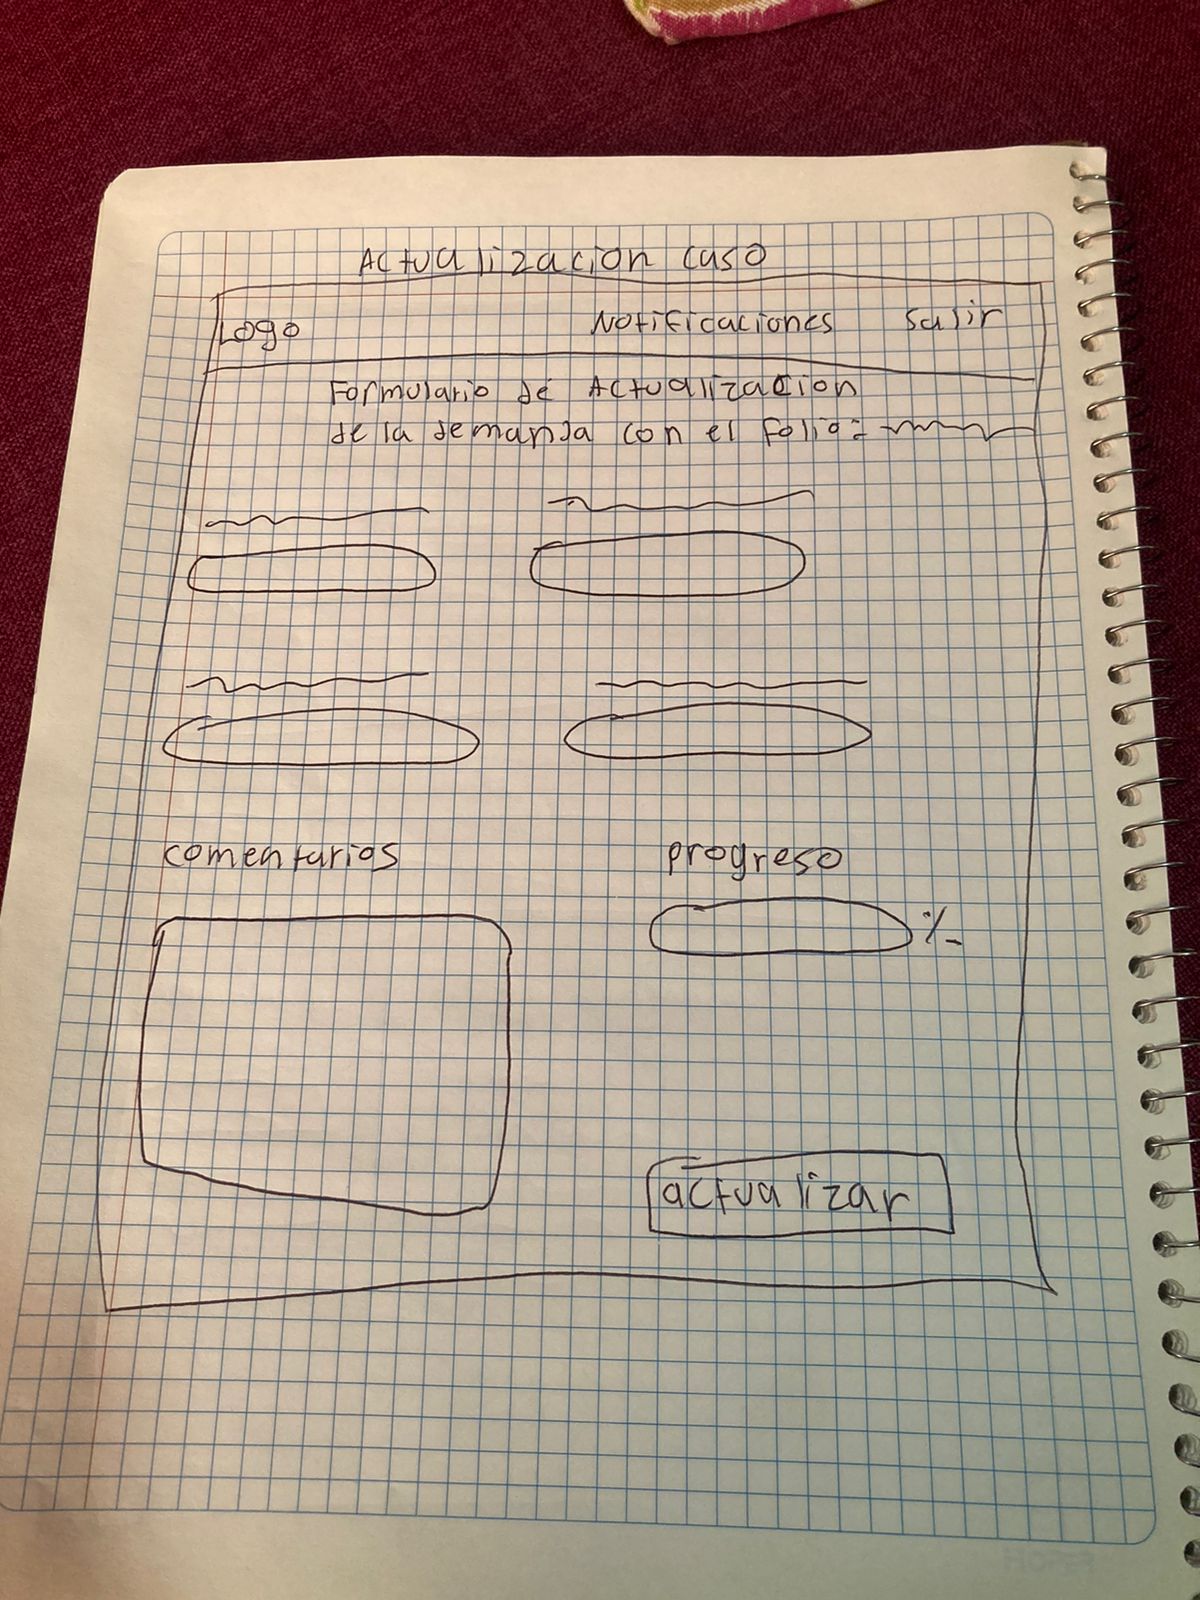 Actualizacion caso
Logo Notificaciones Salir
Formulario de Actualizacion
de la demanda con el folio:
comentarios progreso
%
actualizar